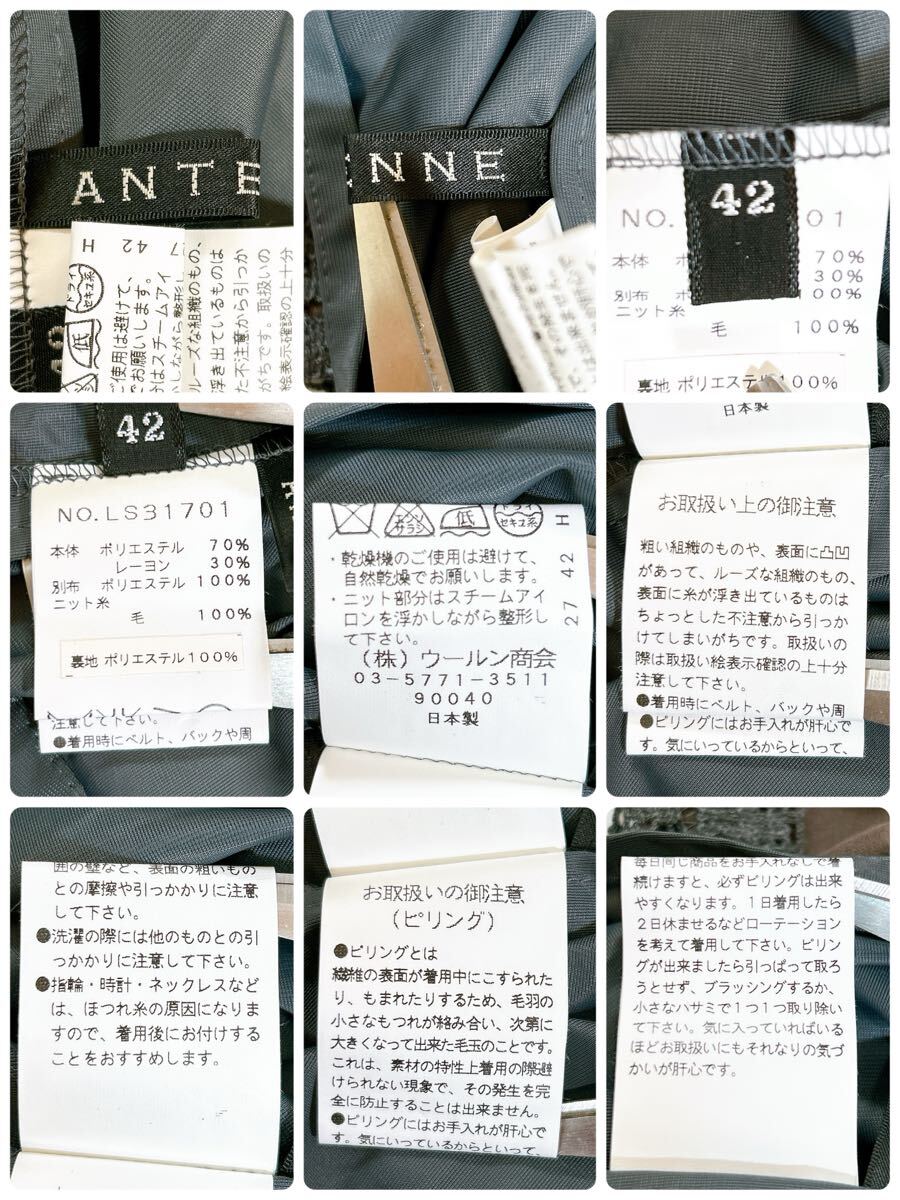 ANTE
H
42
ドライ
セキユ系
低
ご使用は避けて、
でお願いします。
分はスチームアイ
しながら整形し
ルーズな組織のもの、
浮き出ているものは
た不注意から引っか
がちです。取扱いの
絵表示確認の上十分
ENNE
42
NO.
01
本体
70%
30%
別布
100%
ニット糸
毛 100%
裏地 ポリエステル100%
42
NO.LS31701
本体 ポリエステル 70%
レーヨン 30%
別布 ポリエステル 100%
ニット糸
毛 100%
裏地 ポリエステル100%
注意して下さい。
●着用時にベルト、バックや周
エンソ
サラシ
低
ドライ
セキユ系
・乾燥機のご使用は避けて、
自然乾燥でお願いします。
・ニット部分はスチームアイ
ロンを浮かしながら整形し
て下さい。
(株)ウールン商会
03-5771-3511
90040
日本製
27 42 H
日本製
お取扱い上の御注意
粗い組織のものや、表面に凸凹
があって、ルーズな組織のもの、
表面に糸が浮き出ているものは
ちょっとした不注意から引っか
けてしまいがちです。取扱いの
際は取扱い絵表示確認の上十分
注意して下さい。
●着用時にベルト、バックや周
●ピリングにはお手入れが肝心で
す。気にいっているからといって、
囲の壁など、表面の粗いもの
との摩擦や引っかかりに注意
して下さい。
●洗濯の際には他のものとの引
っかかりに注意して下さい。
●指輪・時計・ネックレスなど
は、ほつれ糸の原因になりま
すので、着用後にお付けする
ことをおすすめします。
お取扱いの御注意
(ピリング)
●ピリングとは
繊維の表面が着用中にこすられた
り、もまれたりするため、毛羽の
小さなもつれが絡み合い、次第に
大きくなって出来た毛玉のことです。
これは、素材の特性上着用の際避
けられない現象で、その発生を完
全に防止することは出来ません。
●ピリングにはお手入れが肝心で
す。気にいっているからといって、
毎日同じ商品をお手入れなしで着
続けますと、必ずピリングは出来
やすくなります。1日着用したら
2日休ませるなどローテーション
を考えて着用して下さい。ピリン
グが出来ましたら引っぱって取ろ
うとせず、ブラッシングするか、
小さなハサミで1つ1つ取り除い
て下さい。気に入っていればいる
ほどお取扱いにもそれなりの気づ
かいが肝心です。